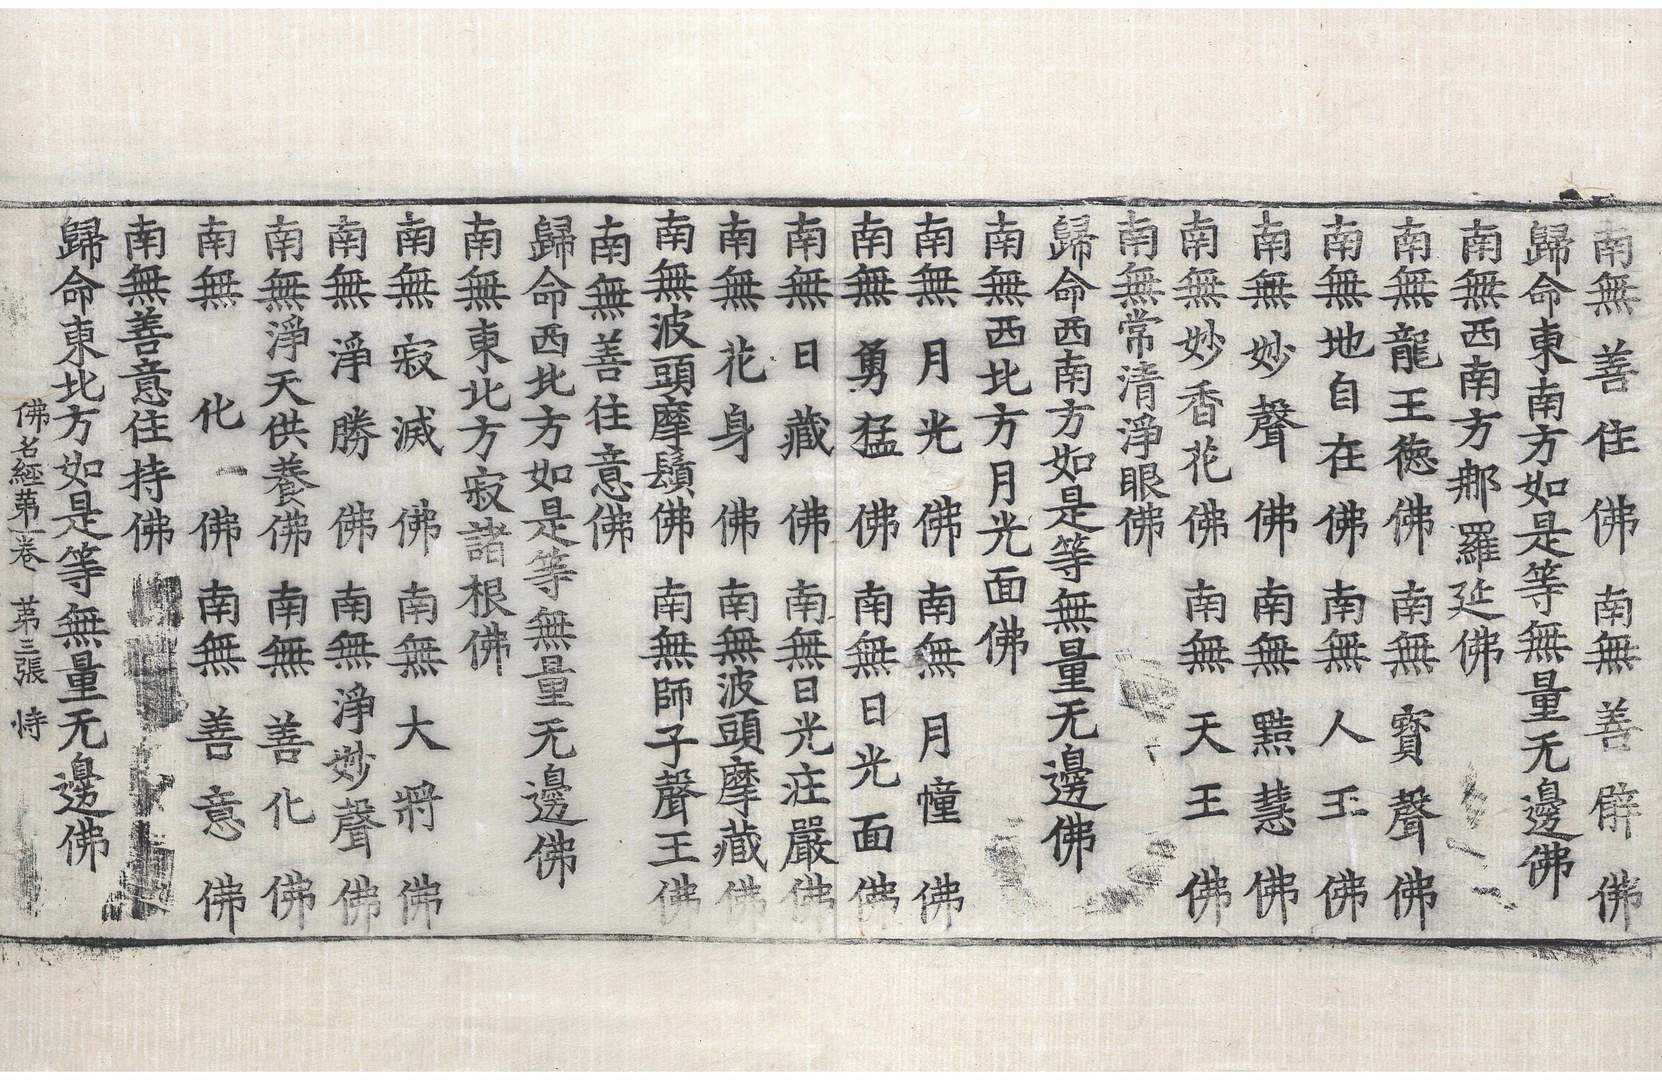 南無善住佛 南無善臂佛
歸命東南方如是等無量无邊佛
南無西南方那羅延佛
南無龍王德佛 南無寳聲佛
南無地自在佛 南無人王佛
南無妙聲佛 南無㸃慧佛
南無妙香花佛 南無天王佛
南無常清淨眼佛
歸命西南方如是等無量无邊佛
南無西北方月光面佛
南無月光佛 南無月幢佛
南無勇猛佛 南無日光面佛
南無日藏佛 南無日光庄嚴佛
南無花身佛 南無波頭摩藏佛
南無波頭摩鬚佛 南無師子聲王佛
南無善住意佛
歸命西北方如是等無量无邊佛
南無東北方寂諸根佛
南無寂滅佛 南無大將佛
南無淨勝佛 南無淨妙聲佛
南無淨天供養佛 南無善化佛
南無化佛 南無善意佛
南無善意住持佛
歸命東北方如是等無量无邊佛
佛名經第一卷 第三張 恃